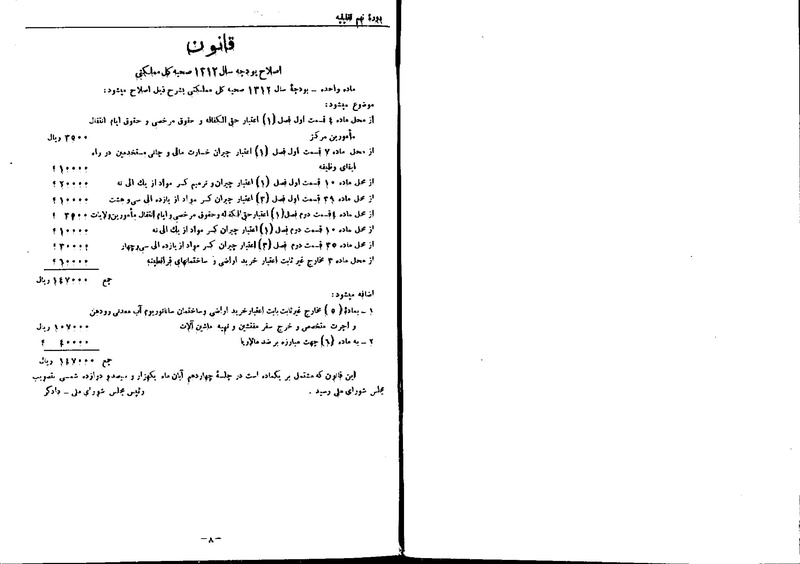 دورهٔ نهم تقنینیه
قانون
اصلاح بودجه سال ۱۳۱۲ صحیه کل مملکتی
ماده واحده – بودجهٔ سال ۱۳۱۲ صحیه کل مملکتی بشرح ذیل اصلاح میشود:
موضوع میشود:
از محل ماده ٤ قسمت اول فصل (۱) اعتبار حق الکفاله و حقوق مرخصی و حقوق ایام انتقال
مأمورین مرکز ۳۵۰۰ ریال
از محل ماده ۷ قسمت اول فصل (۱) اعتبار جبران خسارت مالی و جانی مستخدمین در راه
ایفای وظیفه ۱۰۰۰۰ »
از محل ماده ۱۰ قسمت اول فصل (۱) اعتبار جبران و ترمیم کسر مواد از یک الی نه ۲۰۰۰۰ »
از محل ماده ۳۹ قسمت اول فصل (۳) اعتبار جبران کسر مواد از یازده الی سی و هشت ۱۰۰۰۰ »
از محل ماده ٤ قسمت دوم فصل (۱) اعتبار حق الکفاله و حقوق مرخصی و ایام انتقال مأمورین ولایات ۳۵۰۰ »
از محل ماده ۱۰ قسمت دوم فصل (۱) اعتبار جبران کسر مواد از یک الی نه ۱۰۰۰۰ »
از محل ماده ۳۵ قسمت دوم فصل (۳) اعتبار جبران کسر مواد از یازده الی سی و چهار ۳۰۰۰۰ »
از محل ماده ۳ مخارج غیر ثابت اعتبار خرید اراضی و ساختمانهای قرانطینه ٦۰۰۰۰ »
جمع ۱٤۷۰۰۰ ریال
اضافه میشود:
۱ – بمادهٔ (۵) مخارج غیر ثابت بابت اعتبار خرید اراضی و ساختمان ساناتوریوم آب معدنی رودهن
و اجرت متخصص و خرج سفر مفتشین و تهیه ماشین آلات ۱۰۷۰۰۰ ریال
۲ – به ماده (٦) جهت مبارزه بر ضد مالاریا ٤۰۰۰۰ »
جمع ۱٤۷۰۰۰ ریال
این قانون که مشتمل بر یکماده است در جلسهٔ چهاردهم آبان ماه یکهزار و سیصد و دوازده شمسی بتصویب
مجلس شورای ملی رسید. رئیس مجلس شورای ملی – دادگر
–۸–